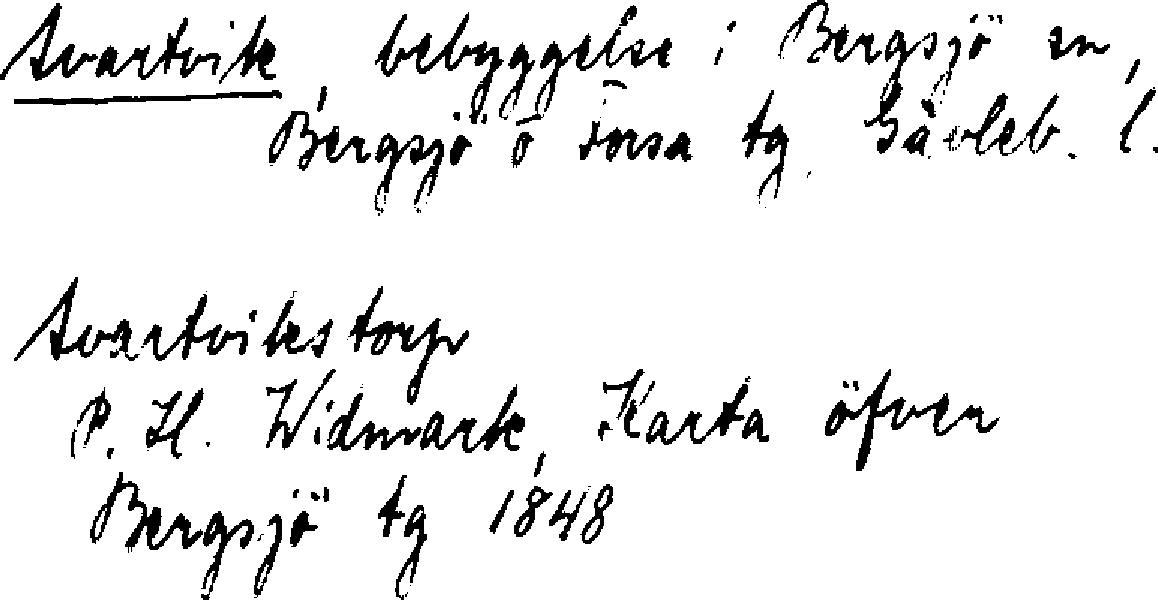 Svartvik, bebyggelse i Bergsjö sn,
Bergsjö o Forsa tg. Gävleb. l.
Svartvikstorp
P. H. Widmark, Karta öfver
Bergsjö tg 1848